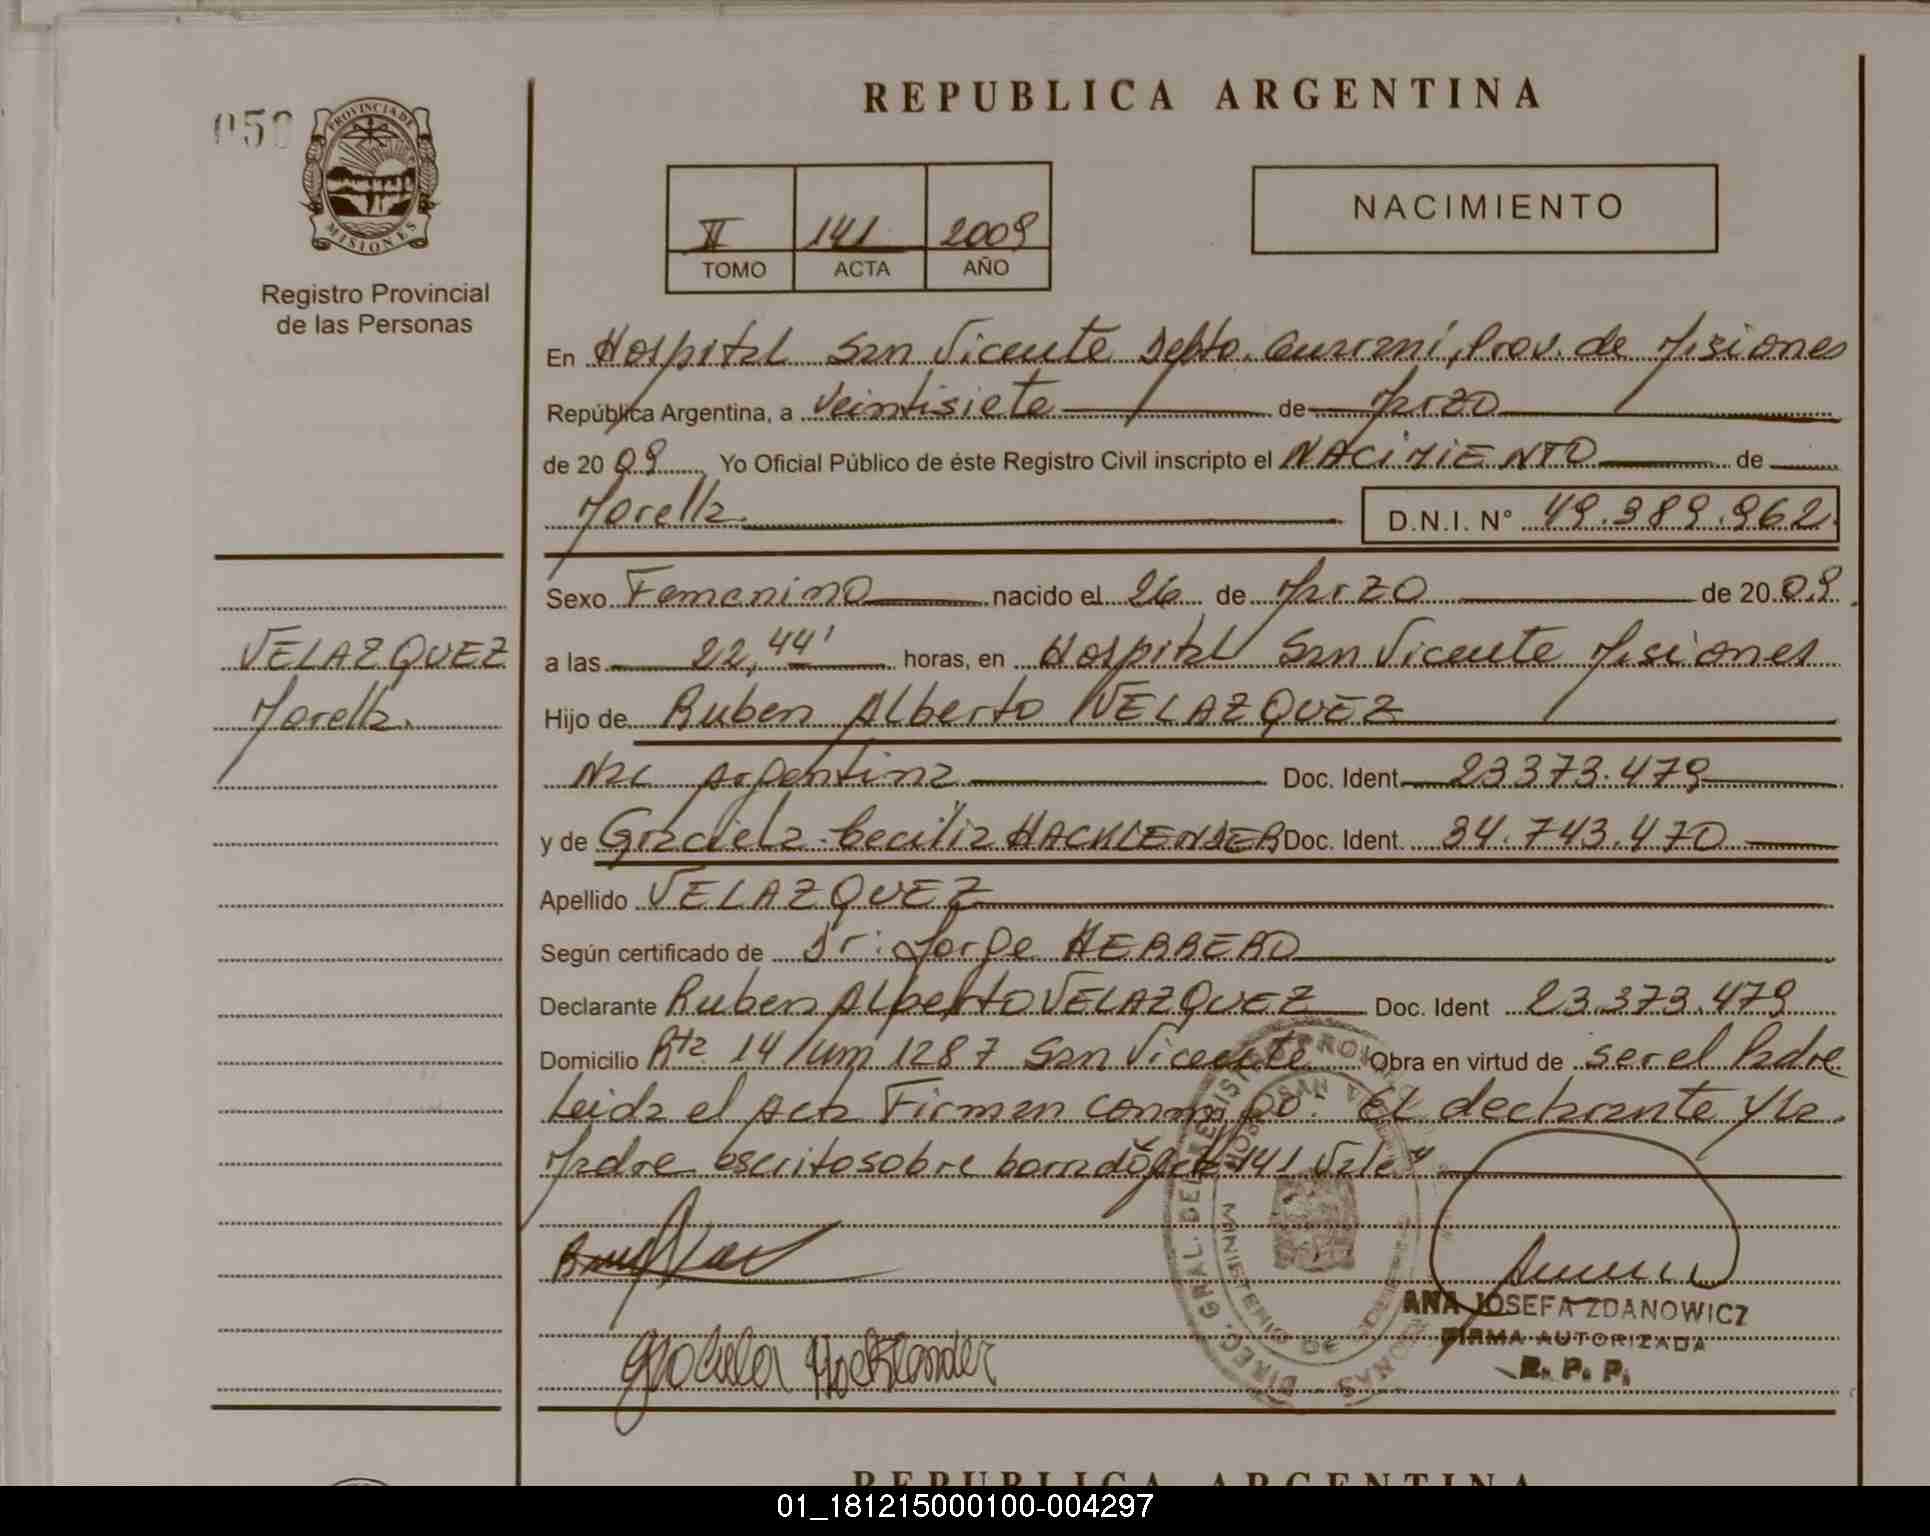 REPUBLICA ARGENTINA
050
PROVINCIA DE
MISIONES
Registro Provincial
de las Personas
II 141 2009
TOMO ACTA AÑO
NACIMIENTO
En Hospital San Vicente Depto. Guarani, Prov. de Misiones
República Argentina, a Veintisiete de Marzo
de 20 09 Yo Oficial Público de éste Registro Civil inscripto el NACIMIENTO de
Morella D.N.I. N° 49.389.962
Sexo Femenino nacido el 26 de Marzo de 20 09
VELAZQUEZ
Morella.
a las 22,44' horas, en Hospital San Vicente Misiones
Hijo de Ruben Alberto VELAZQUEZ
Nac Argentina Doc. Ident. 23373.479
y de Graciela Cecilia HACKLENDER Doc. Ident. 34.743.470
Apellido VELAZQUEZ
Según certificado de Dr: Jorge HERRERO
Declarante Ruben Alberto VELAZQUEZ Doc. Ident 23.373.479
Domicilio Rta 14 Km 1287 San Vicente Obra en virtud de ser el Padre
Leida el Acta Firman conmigo: El declarante y la
Madre escrito sobre borrado Acta 141 Vale"
Graciela Hacklander
ANA JOSEFA ZDANOWICZ
FIRMA AUTORIZADA
R. P. P.
REPUBLICA ARGENTINA
01_181215000100-004297